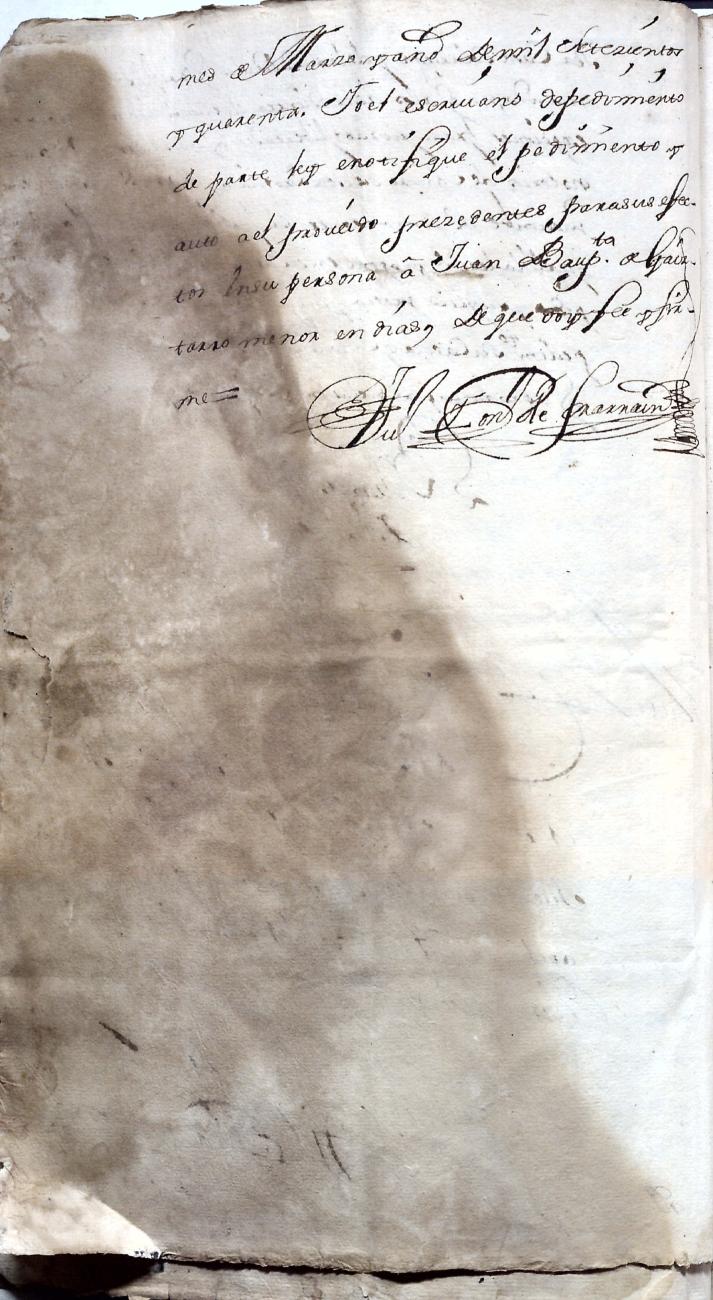 mes de Marzo y año de mil setezientos
y quarenta. Yo el escriuano de pedimiento
de parte ley e notifique el pedimiento y
auto a el proueido prezedentes para sus efec-
tos en su persona â Juan Baup.ta de Gaz-
tarro menor en dias, de que doy fee y fir-
me =